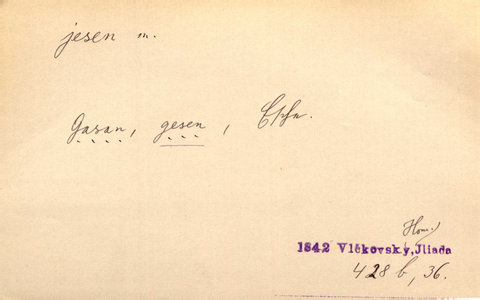 jesen m.
Gasan, gesen,
Hom.
1842 Vlčkovský, Iliada
428 b, 36.